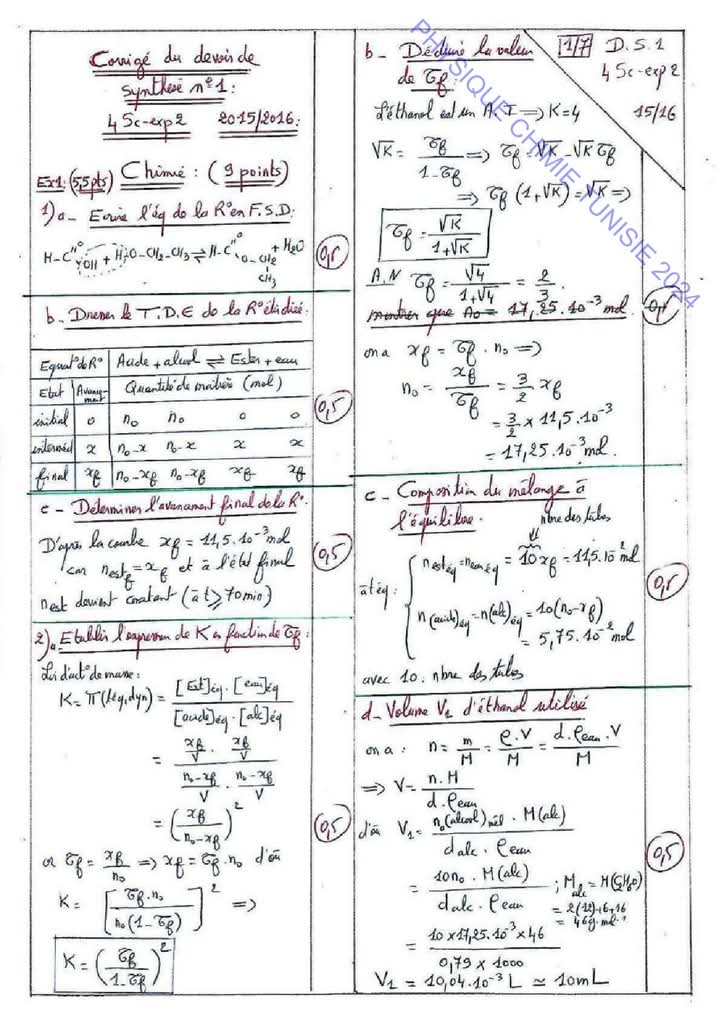 Corrigé du devoir de
synthèse n°1:
4 Sc-exp2 2015/2016:
Ex1: (5,5pts) Chimie: (9 points)
1) a- Ecrire l'éq de la R° en F.S.D:
H-C=O OH + H-O-CH2-CH3 ⇌ H-C=O O-CH2 CH3 + H2O
0,5
b- Dresser le T.D.E de la R° étudiée:
Equat° de R° Acide + alcool ⇌ Ester + eau
Etat Avancement Quantité de matière (mol)
initial 0 n0 n0 0 0
interméd x n0-x n0-x x x
final xf n0-xf n0-xf xf xf
0,5
c- Déterminer l'avancement final de la R°.
D'après la courbe xf = 11,5.10⁻³ mol
car nestf = xf et à l'état final
nest devient constant (à t ≥ 70min)
0,5
2) a- Etablir l'expression de K en fonction de τf:
Loi d'act° de masse:
K = π(téq,dyn) = [Est]éq . [eau]éq / [acide]éq . [alc]éq
= (xf/V . xf/V) / (n0-xf/V . n0-xf/V)
= (xf / n0-xf)²
or τf = xf/n0 ⟹ xf = τf . n0 d'où
K = [τf . n0 / n0(1-τf)]² ⟹
K = (τf / 1-τf)²
0,5
b- Déduire la valeur
de τf:
L'éthanol est un A.I ⟹ K=4
√K = τf / 1-τf ⟹ τf = √K - √K τf
⟹ τf (1+√K) = √K ⟹
τf = √K / 1+√K
A.N τf = √4 / 1+√4 = 2/3.
montrer que n0 = 17,25.10⁻³ mol.
on a xf = τf . n0 ⟹
n0 = xf/τf = 3/2 xf
= 3/2 × 11,5.10⁻³
= 17,25.10⁻³ mol.
c- Composition du mélange à
l'équilibre.
nbre des tubes
à téq: nestéq = neauéq = 10 xf = 11,5.10⁻² mol
n(acide)éq = n(alc)éq = 10(n0-xf)
= 5,75.10⁻² mol
avec 10: nbre des tubes
0,5
d- Volume V1 d'éthanol utilisé
on a: n = m/M = ρ.V/M = d.ρeau.V/M
⟹ V = n.M / d.ρeau
d'où V1 = n0(alcool)mél . M(alc) / dalc . ρeau
= 10n0 . M(alc) / dalc . ρeau ; Malc = M(C2H6O)
= 2(12)+6+16
= 46g.mol⁻¹
= 10×17,25.10⁻³×46 / 0,79 × 1000
V1 = 10,04.10⁻³ L ≃ 10mL
0,5
1/7 D.S.1
4 Sc-exp2
15/16
PHYSIQUE CHIMIE TUNISIE 2024